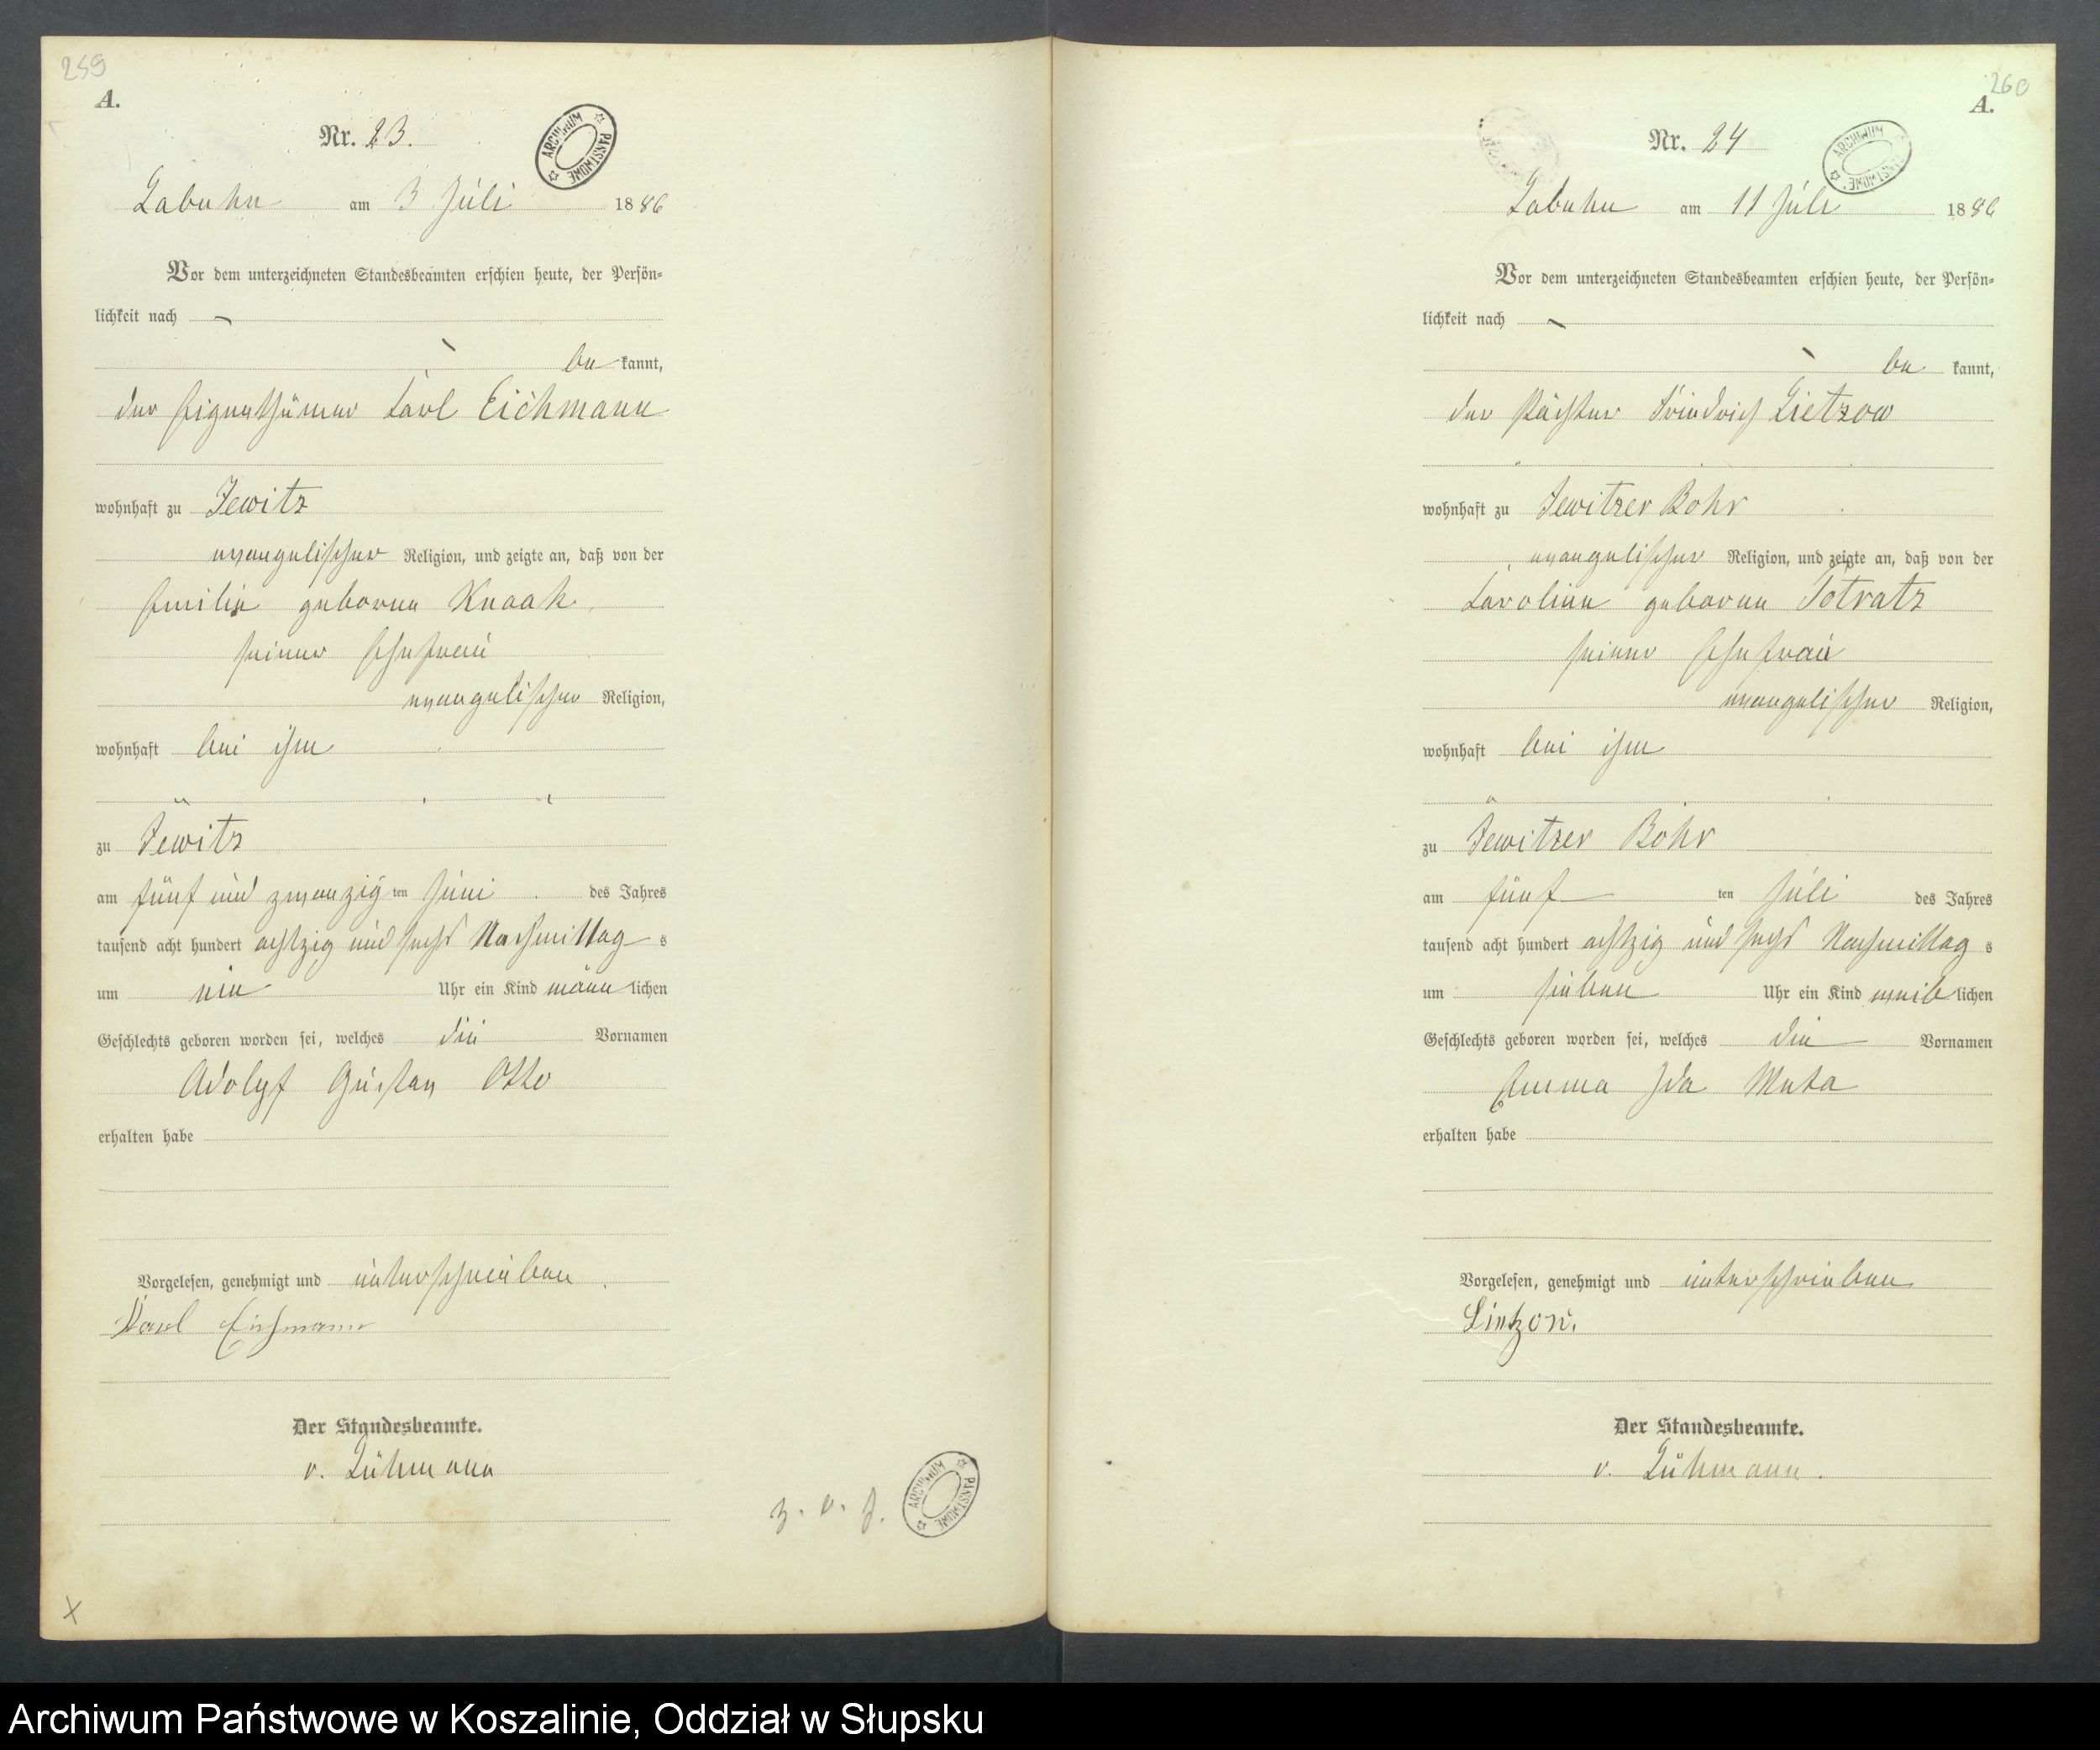 259
A.
Nr. 23.
ARCHIWUM PAŃSTWOWE
Labuhn am 3 Juli 1886
Vor dem unterzeichneten Standesbeamten erschien heute, der Persön=
lichkeit nach
be kannt,
der Eigenthümer Carl Eichmann
wohnhaft zu Jewitz
evangelischer Religion, und zeigte an, daß von der
Emilie geborne Knaak
seiner Ehefrau
evangelischer Religion,
wohnhaft bei ihm
zu Jewitz
am fünf und zwanzig ten Juni des Jahres
tausend acht hundert achtzig und sechs Nachmittag s
um ein Uhr ein Kind männ lichen
Geschlechts geboren worden sei, welches die Vornamen
Adolf Gustav Otto
erhalten habe
Vorgelesen, genehmigt und unterschrieben.
Karl Eichmann
Der Standesbeamte.
v. Lühmann
ARCHIWUM PAŃSTWOWE
X
260
A.
Nr. 24
ARCHIWUM PAŃSTWOWE
Labuhn am 11 Juli 1886
Vor dem unterzeichneten Standesbeamten erschien heute, der Persön=
lichkeit nach
be kannt,
der Pächter Friedrich Lietzow
wohnhaft zu Jewitzer Bohr
evangelischer Religion, und zeigte an, daß von der
Caroline geborne Totratz
seiner Ehefrau
evangelischer Religion,
wohnhaft bei ihm
zu Jewitzer Bohr
am fünf ten Juli des Jahres
tausend acht hundert achtzig und sechs Nachmittag s
um sieben Uhr ein Kind weib lichen
Geschlechts geboren worden sei, welches die Vornamen
Emma Ida Meta
erhalten habe
Vorgelesen, genehmigt und unterschrieben
Lietzow.
Der Standesbeamte.
v. Lühmann.
Archiwum Państwowe w Koszalinie, Oddział w Słupsku